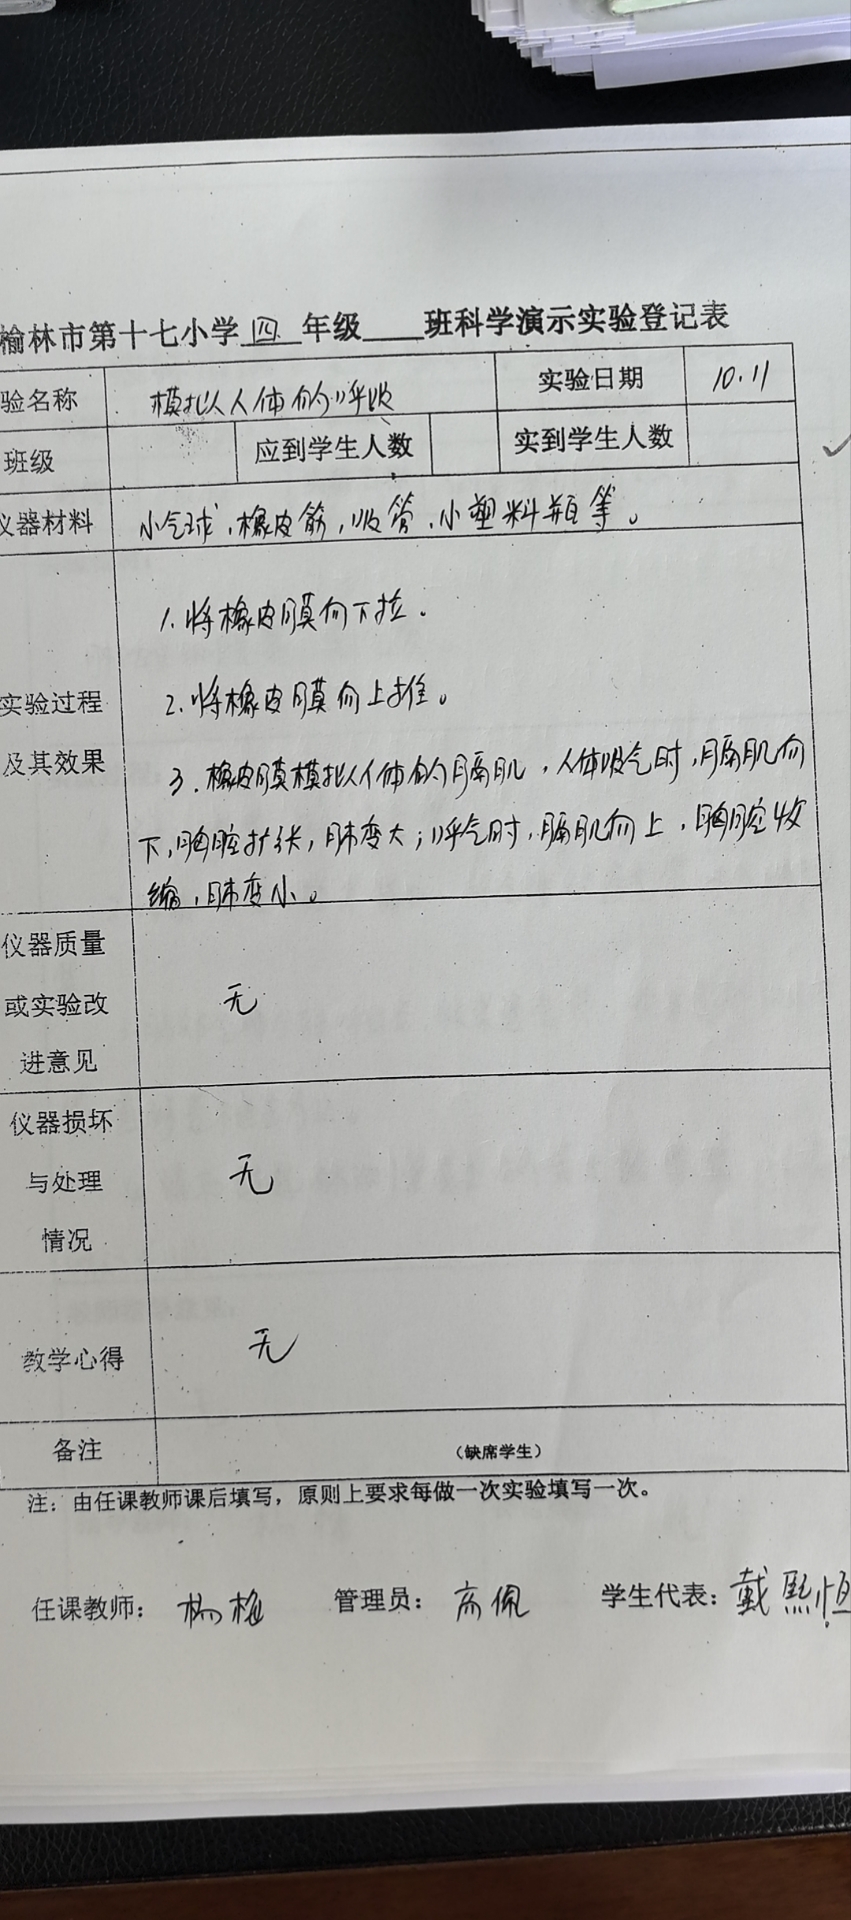 榆林市第十七小学 四 年级____班科学演示实验登记表
验名称 模拟人体的呼吸 实验日期 10.11
班级 应到学生人数 实到学生人数
仪器材料 小气球,橡皮筋,吸管,小塑料瓶等。
1.将橡皮膜向下拉。
实验过程 2.将橡皮膜向上推。
及其效果 3.橡皮膜模拟人体的膈肌,人体吸气时,膈肌向
下,胸腔扩张,肺变大;呼气时,膈肌向上,胸腔收
缩,肺变小。
仪器质量
或实验改 无
进意见
仪器损坏
与处理 无
情况
教学心得 无
备注 (缺席学生)
注:由任课教师课后填写,原则上要求每做一次实验填写一次。
任课教师: 杨梅 管理员: 高佩 学生代表: 戴熙恒